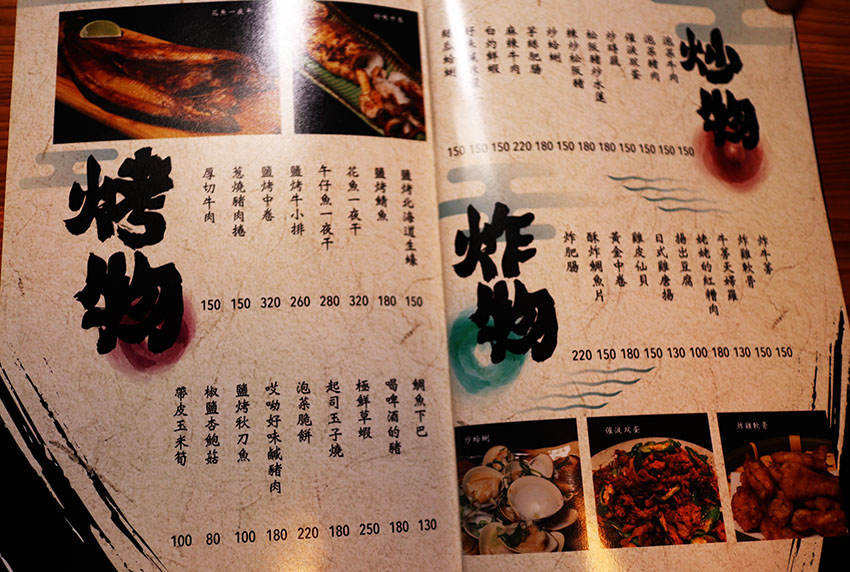 炒物
泡菜牛肉 150
泡菜豬肉 150
催淚双蛋 150
炒時蔬 150
松阪豬炒水蓮 180
辣炒松阪豬 180
炒蛤蜊 150
芋綠肥腸 180
麻辣牛肉 220
白灼鮮蝦 150
150
絲瓜蛤蜊 150
炸物
炸牛蒡 150
炸雞軟骨 150
牛蒡天婦羅 130
姥姥的紅糟肉 180
揚出豆腐 100
日式雞唐揚 130
雞皮仙貝 150
黃金中卷 180
酥炸鯛魚片 150
炸肥腸 220
炒蛤蜊
催淚双蛋
炸雞軟骨
花魚一夜干
烤物
鹽烤北海道生蠔 150
鹽烤鯖魚 180
花魚一夜干 320
午仔魚一夜干 280
鹽烤牛小排 260
鹽烤中卷 320
蔥燒豬肉捲 150
厚切牛肉 150
鯛魚下巴 130
喝啤酒的豬 180
極鮮草蝦 250
起司玉子燒 180
泡菜脆餅 220
哎呦好味鹹豬肉 180
鹽烤秋刀魚 100
椒鹽杏鮑菇 80
帶皮玉米筍 100